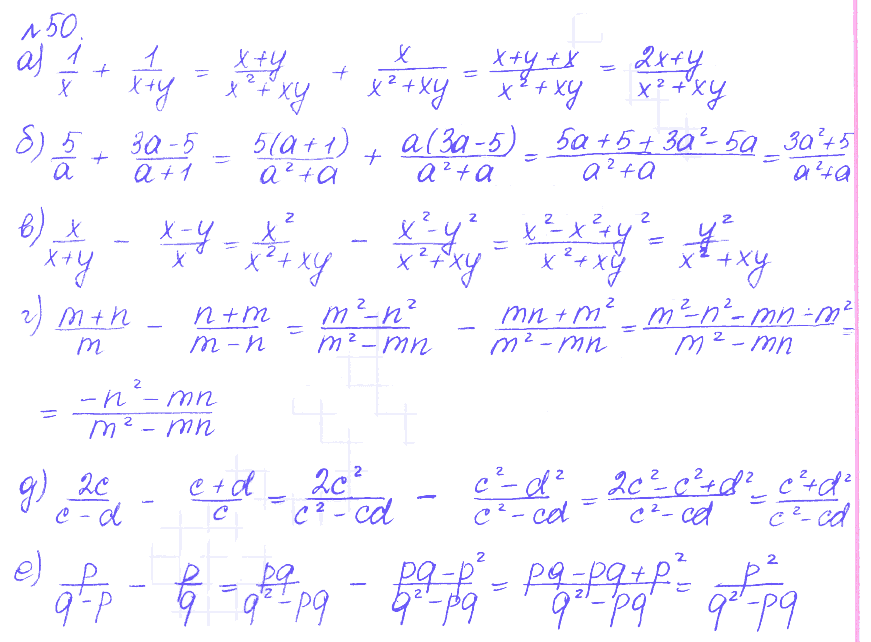 №50.
а) 1/x + 1/(x+y) = (x+y)/(x²+xy) + x/(x²+xy) = (x+y+x)/(x²+xy) = (2x+y)/(x²+xy)
б) 5/a + (3a-5)/(a+1) = 5(a+1)/(a²+a) + a(3a-5)/(a²+a) = (5a+5+3a²-5a)/(a²+a) = (3a²+5)/(a²+a)
в) x/(x+y) - (x-y)/x = x²/(x²+xy) - (x²-y²)/(x²+xy) = (x²-x²+y²)/(x²+xy) = y²/(x²+xy)
г) (m+n)/m - (n+m)/(m-n) = (m²-n²)/(m²-mn) - (mn+m²)/(m²-mn) = (m²-n²-mn-m²)/(m²-mn) =
= (-n²-mn)/(m²-mn)
д) 2c/(c-d) - (c+d)/c = 2c²/(c²-cd) - (c²-d²)/(c²-cd) = (2c²-c²+d²)/(c²-cd) = (c²+d²)/(c²-cd)
е) p/(q-p) - p/q = pq/(q²-pq) - (pq-p²)/(q²-pq) = (pq-pq+p²)/(q²-pq) = p²/(q²-pq)